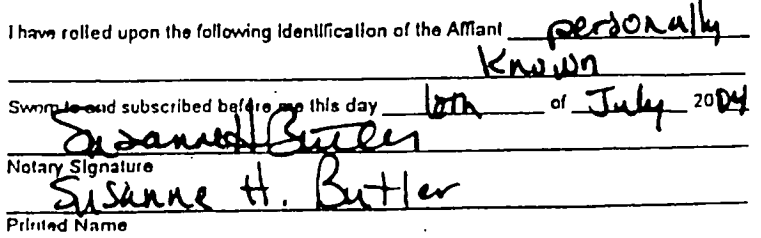 I have relied upon the following identification of the Affiant personally
Known
Sworn to and subscribed before me this day of July 2004
Susanne H Butler
Notary Signature
Susanne H. Butler
Printed Name